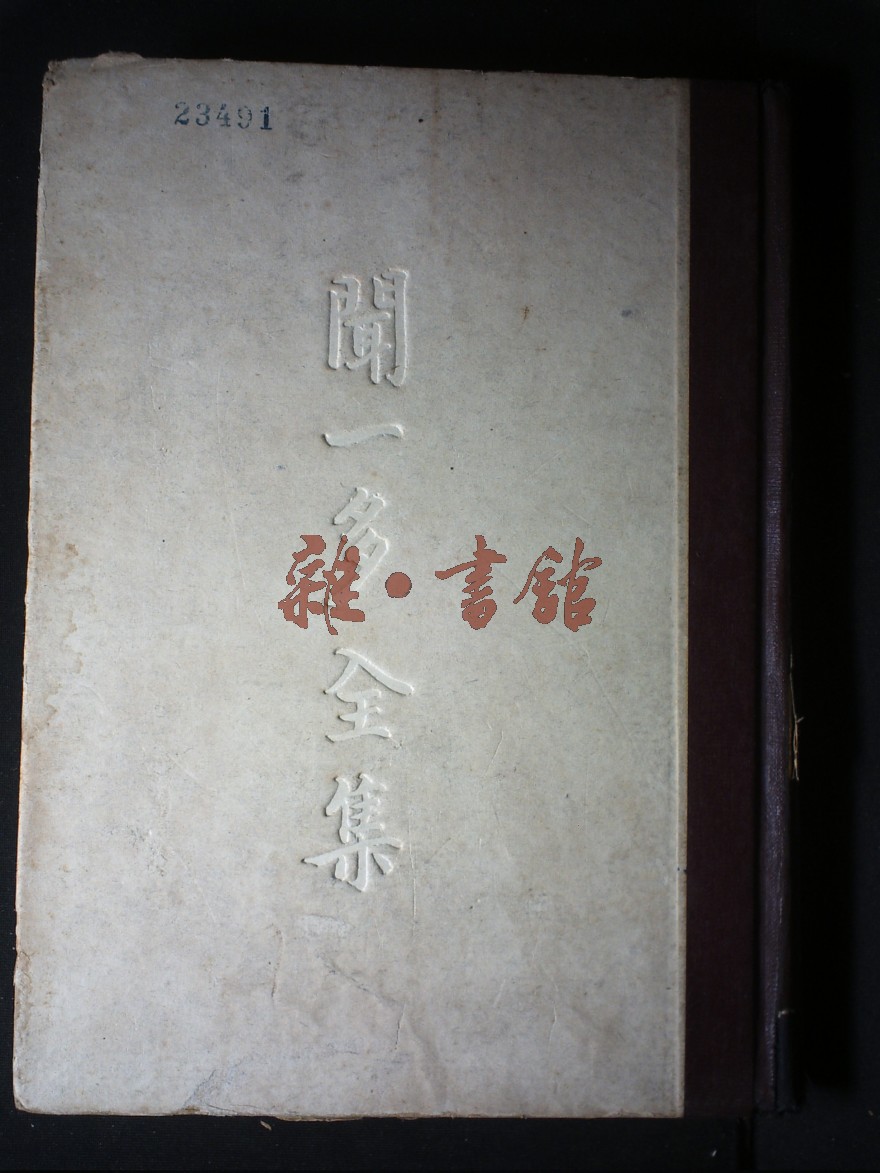 23491
聞一多全集
雜·書館